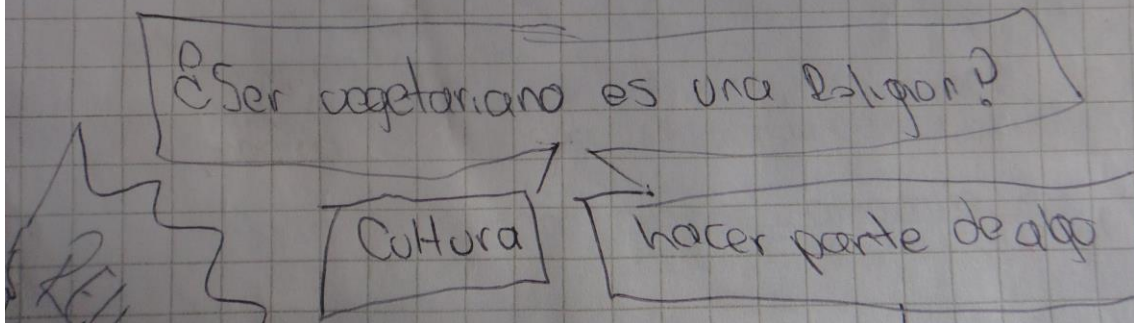 ¿Ser vegetariano es una Religion?
Cultura
hacer parte de algo